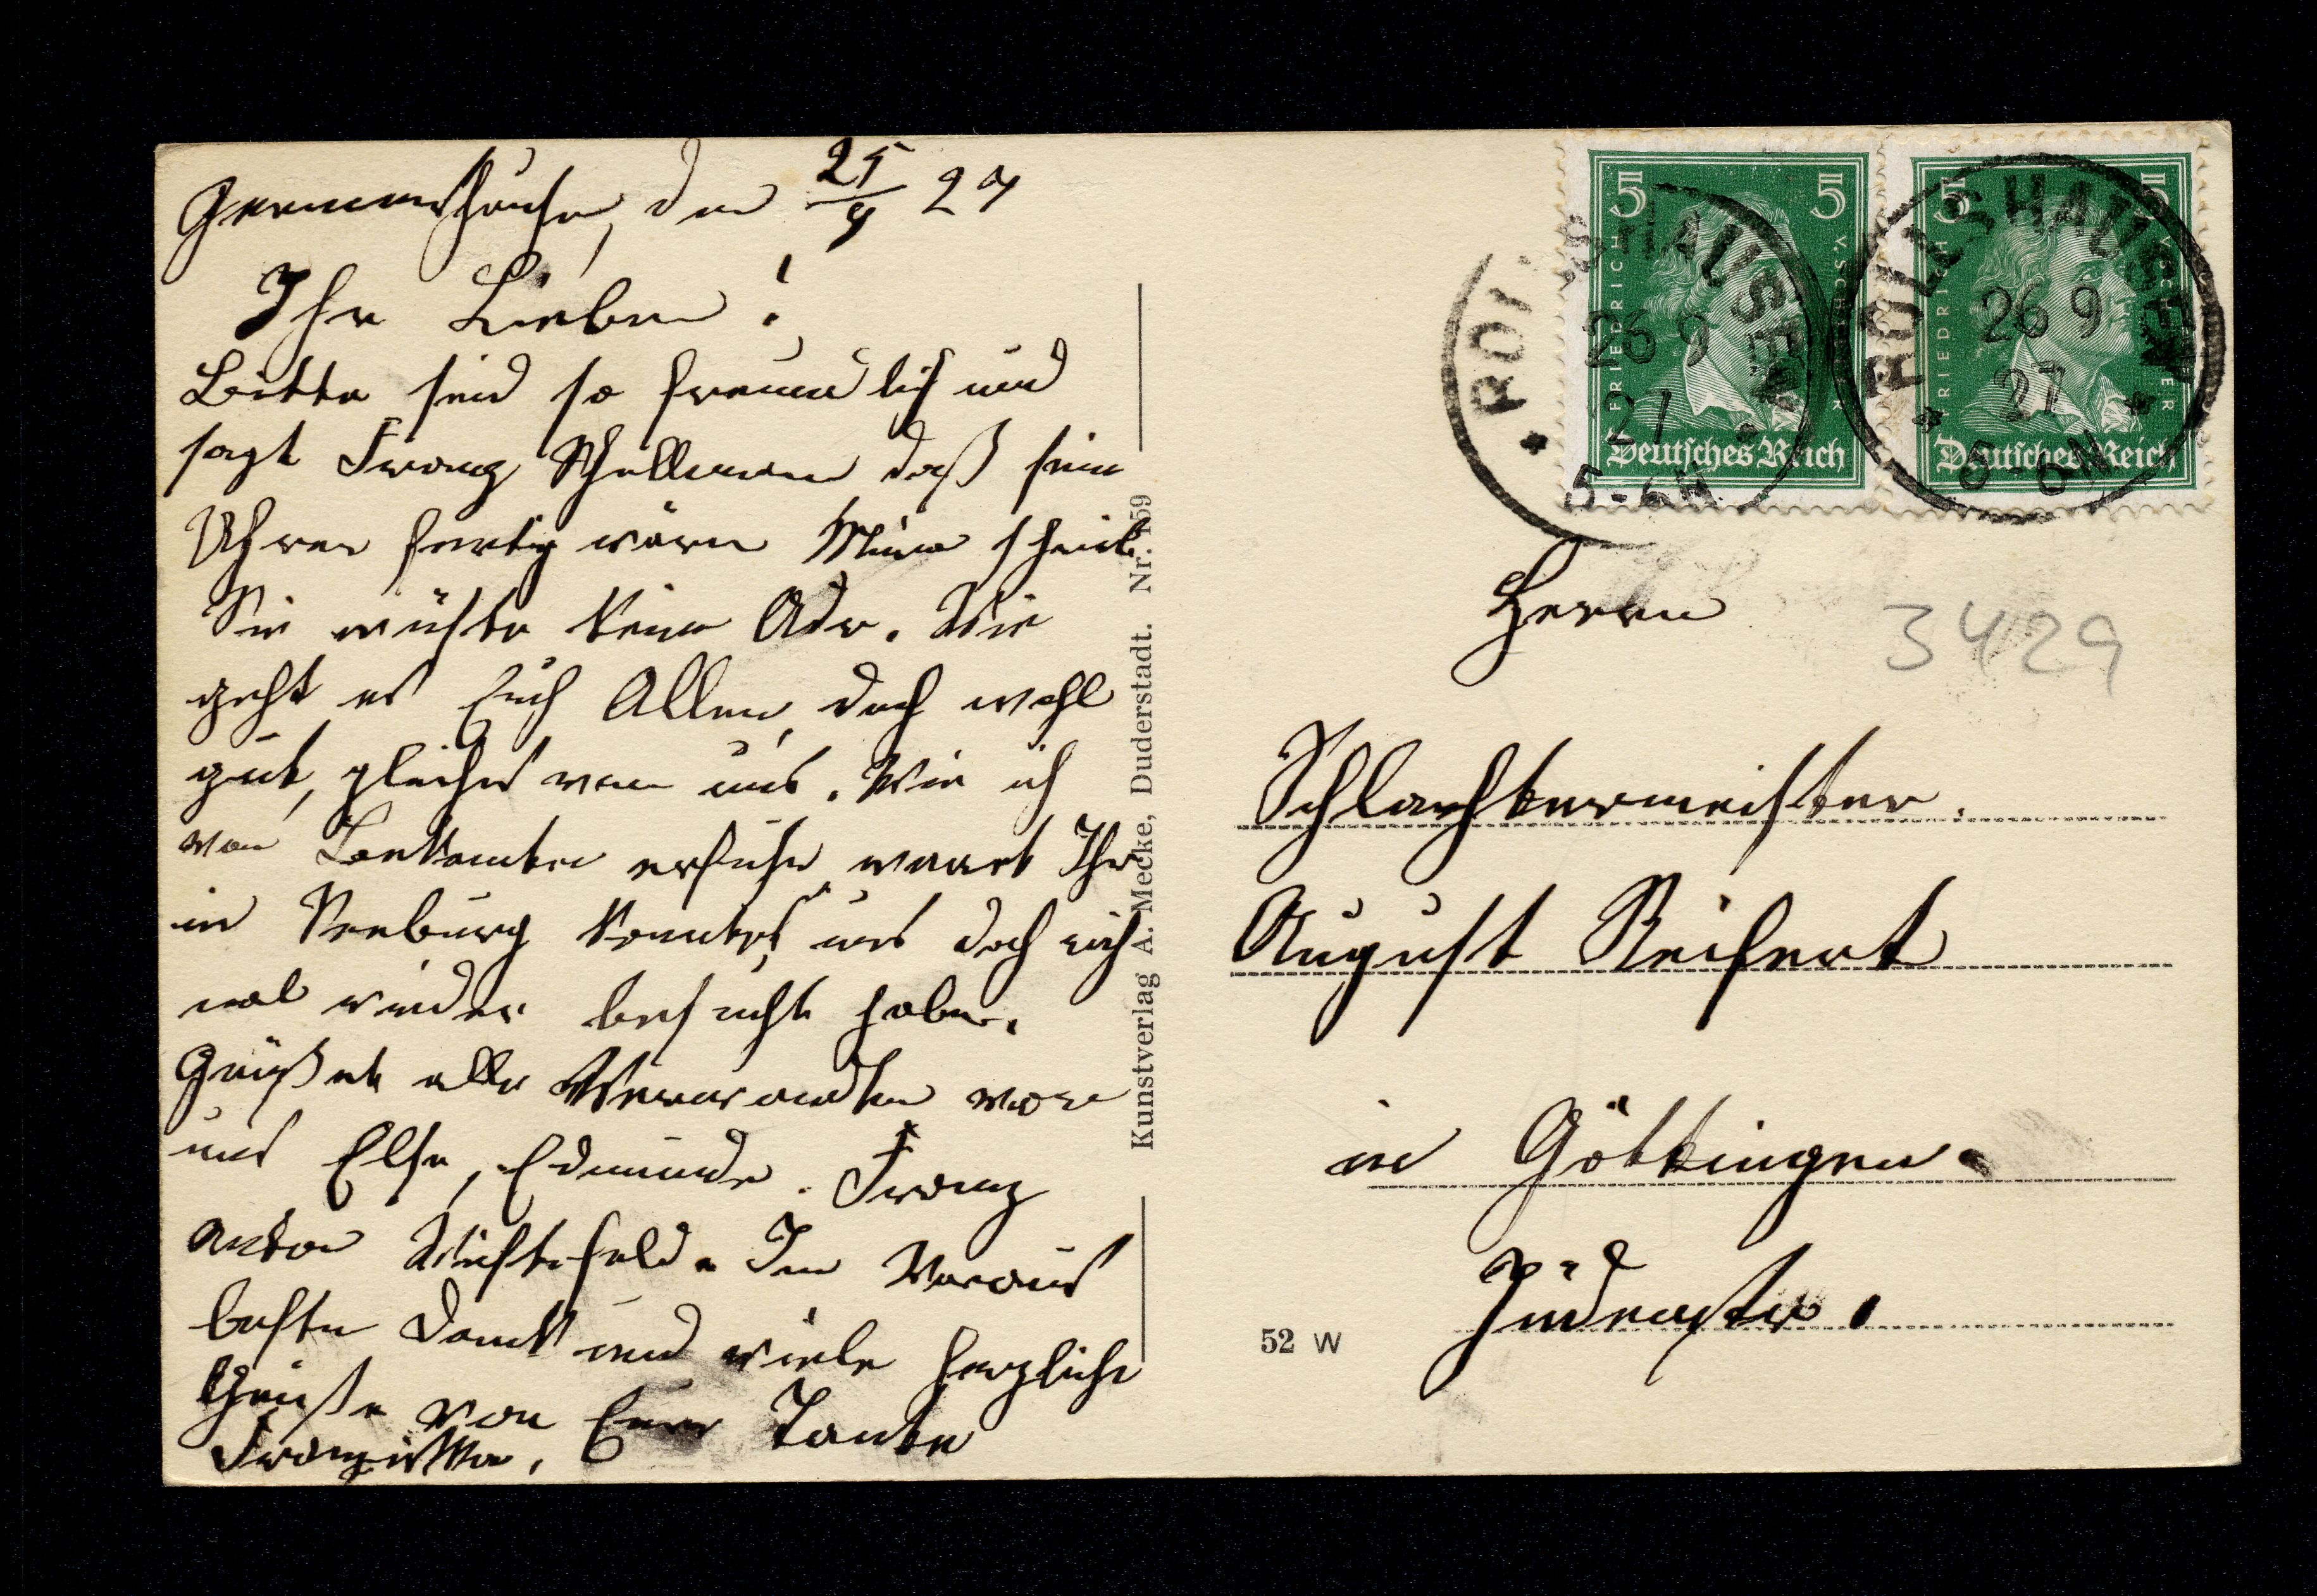 Germershausen, den 25/9 27
Ihr Lieben!
Bitte seid so freundlich und
sagt Franz Schellmann daß seine
Uhren fertig wären Mina schreibt
Sie wüßte keine Adr. Wie
geht es Euch Allen, doch wohl
gut, gleiches von uns. Wie ich
von Bekannten erfuhr, waret Ihr
in Seeburg konntet uns doch auch
mal wieder besucht haben.
Grüßet alle Verwandten von
uns Else, Edmunde. Franz
Anton Wüstefeld. Im Voraus
besten Dank und viele herzliche
Grüße von Eurer Tante
Franziska.
Kunstverlag A. Mecke, Duderstadt. Nr. 159
5 5
FRIEDRICH V. SCHILLER
Deutsches Reich
5 5
FRIEDRICH V. SCHILLER
Deutsches Reich
ROLLSHAUSEN
26 9
27
5-6N
ROLLSHAUSEN
26 9
27
5-6N
Herrn
3429
Schlachtermeister.
August Seifert
in Göttingen.
Jüdenstr.
52 W